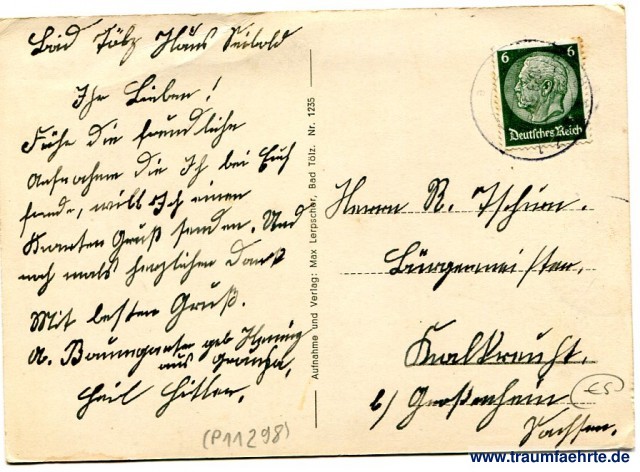 Bad Tölz Haus Seibold
Ihr Lieben!
Führe die freundliche
Aufnahme die Ich bei Euch
fande, will Ich einen
Kaarten Gruß senden. Und
noch mals herzlichen Dank
Mit besten Gruß.
A. Baumgarten geb
aus
Heil Hitler.
(P11298)
Aufnahme und Verlag: Max Lerpscher, Bad Tölz. Nr. 1235
6 6
Deutsches Reich
Herrn R. Tschirn.
Bürgermeister.
Kalkreuth.
b/ Großenhain
Sachsen.
ES
www.traumfaehrte.de